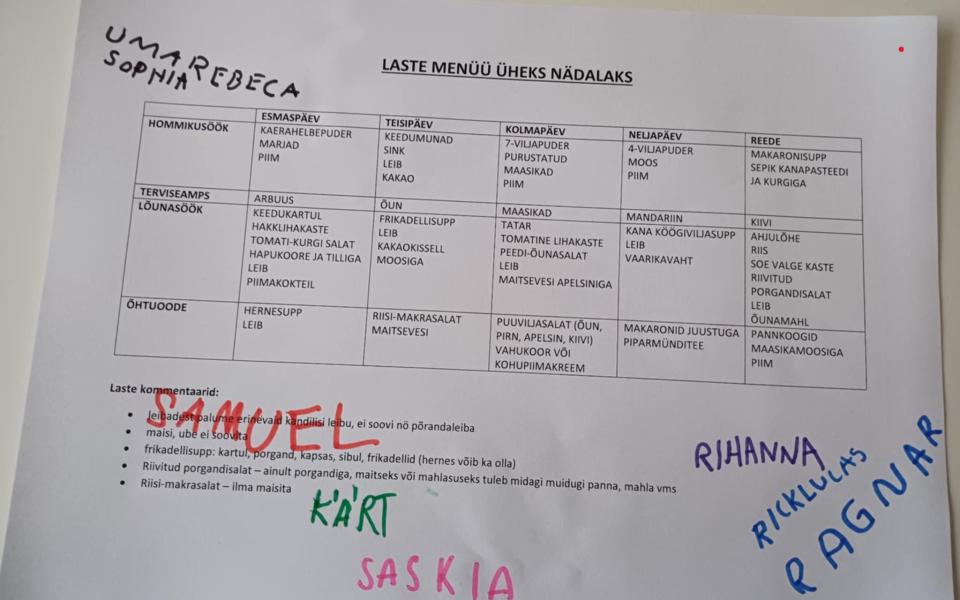 UMA REBECA
SOPHIA
LASTE MENÜÜ ÜHEKS NÄDALAKS
ESMASPÄEV TEISIPÄEV KOLMAPÄEV NELJAPÄEV REEDE
HOMMIKUSÖÖK
KAERAHELBEPUDER
MARJAD
PIIM
KEEDUMUNAD
SINK
LEIB
KAKAO
7-VILJAPUDER
PURUSTATUD
MAASIKAD
PIIM
4-VILJAPUDER
MOOS
PIIM
MAKARONISUPP
SEPIK KANAPASTEEDI
JA KURGIGA
TERVISEAMPS ARBUUS ÕUN MAASIKAD MANDARIIN KIIVI
LÕUNASÖÖK
KEEDUKARTUL
HAKKLIHAKASTE
TOMATI-KURGI SALAT
HAPUKOORE JA TILLIGA
LEIB
PIIMAKOKTEIL
FRIKADELLISUPP
LEIB
KAKAOKISSELL
MOOSIGA
TATAR
TOMATINE LIHAKASTE
PEEDI-ÕUNASALAT
LEIB
MAITSEVESI APELSINIGA
KANA KÖÖGIVILJASUPP
LEIB
VAARIKAVAHT
AHJULÕHE
RIIS
SOE VALGE KASTE
RIIVITUD
PORGANDISALAT
LEIB
ÕUNAMAHL
ÕHTUOODE
HERNESUPP
LEIB
RIISI-MAKRASALAT
MAITSEVESI
PUUVILJASALAT (ÕUN,
PIRN, APELSIN, KIIVI)
VAHUKOOR VÕI
KOHUPIIMAKREEM
MAKARONID JUUSTUGA
PIPARMÜNDITEE
PANNKOOGID
MAASIKAMOOSIGA
PIIM
Laste kommentaarid:
• leibadest palume erinevaid kandilisi leibu, ei soovi nö põrandaleiba
• maisi, ube ei soovita
• frikadellisupp: kartul, porgand, kapsas, sibul, frikadellid (hernes võib ka olla)
• Riivitud porgandisalat – ainult porgandiga, maitseks või mahlasuseks tuleb midagi muidugi panna, mahla vms
• Riisi-makrasalat – ilma maisita
SAMUEL
RIHANNA
RICKLUCAS
RAGNAR
KÄRT
SASKIA